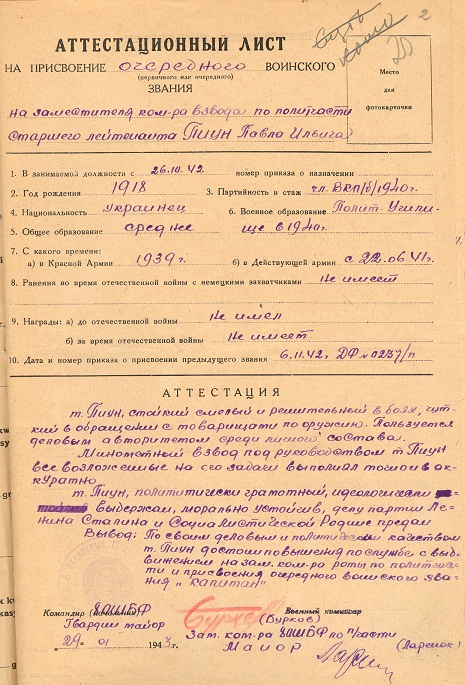 есть
копия
2
АТТЕСТАЦИОННЫЙ ЛИСТ
НА ПРИСВОЕНИЕ очередного ВОИНСКОГО
(первичного или очередного)
ЗВАНИЯ
Место
для
фотокарточки
на заместителя ком-ра взвода по политчасти
Старшего лейтенанта Пиун Павло Ильича
1. В занимаемой должности с 26.10.42 номер приказа о назначении
2. Год рождения 1918 3. Партийность и стаж чл. ВКП/б/1940г.
4. Национальность Украинец 6. Военное образование Полит-Учили-
5. Общее образование средне ще в 1940г.
7. С какого времени:
а) в Красной Армии 1939г. б) в Действующей армии с 22.06.41г.
8. Ранения во время отечественной войны с немецкими захватчиками Не имеет
9. Награды: а) до отечественной войны Не имел
б) за время отечественной войны Не имеет
10. Дата и номер приказа о присвоении предыдущего звания 6.11.42. ДФ №0237/п
АТТЕСТАЦИЯ
т. Пиун, стойкий смелый и решительный в боях, чут-
кий в обращении с товарищами по оружию. Пользуется
деловым авторитетом среди личного состава.
Минометный взвод под руководством т Пиун
все возложенные на его задачи выполнял точно и ак-
куратно.
т. Пиун, полititически грамотный, идеологически
выдержан, морально устойчив, делу партии Ле-
нина Сталина и Социалистической Родине предан
Вывод: По своим деловым и политическим качеством
т. Пиун достоин повышения по службе с выд-
вижением на зам. ком-ра роты по политчас-
ти и присвоения очередного воинского зва-
ния „капитан"
Командир (начальник) 8 ОШБФ
Гвардии майор
29 . 01 1943 г.
Военный комиссар
(Бурков)
Зам. ком-ра 8 ОШБФ по п/части
Майор (Ларенок)